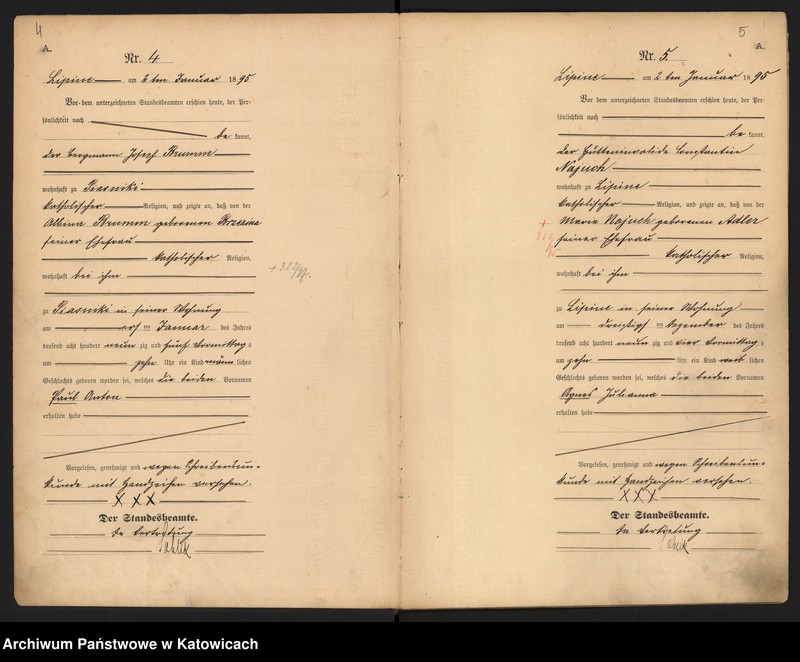 4
A.
Nr. 4
Lipine am 2 ten Januar 1895
Vor dem unterzeichneten Standesbeamten erschien heute, der Per-
sönlichkeit nach
be kannt,
der Bergmann Joseph Brumm
wohnhaft zu Piasniki
katholischer Religion, und zeigte an, daß von der
Albina Brumm geborenen Brzezina
seiner Ehefrau
katholischer Religion,
wohnhaft bei ihm
zu Piasniki in seiner Wohnung
am ersten Januar des Jahres
tausend acht hundert neun zig und fünf Vormittags
um zehn Uhr ein Kind männ lichen
Geschlechts geboren worden sei, welches die beiden Vornamen
Paul Anton
erhalten habe
Vorgelesen, genehmigt und wegen Schreibensun-
kunde mit Handzeichen versehen.
XXX
Der Standesbeamte.
In Vertretung
+ 322/97.
5
A.
Nr. 5.
Lipine am 2 ten Januar 1895
Vor dem unterzeichneten Standesbeamten erschien heute, der Per-
sönlichkeit nach
be kannt,
der Hütteninvalide Constantin
Najuch
wohnhaft zu Lipine
katholischer Religion, und zeigte an, daß von der
Marie Najuch geborenen Adler
seiner Ehefrau
katholischer Religion,
wohnhaft bei ihm
zu Lipine in seiner Wohnung
am dreißigsten Dezember des Jahres
tausend acht hundert neun zig und vier Vormittags
um zehn Uhr ein Kind weib lichen
Geschlechts geboren worden sei, welches die beiden Vornamen
Agnes Julianna
erhalten habe
Vorgelesen, genehmigt und wegen Schreibensun-
kunde mit Handzeichen versehen.
XXX
Der Standesbeamte.
In Vertretung
Archiwum Państwowe w Katowicach